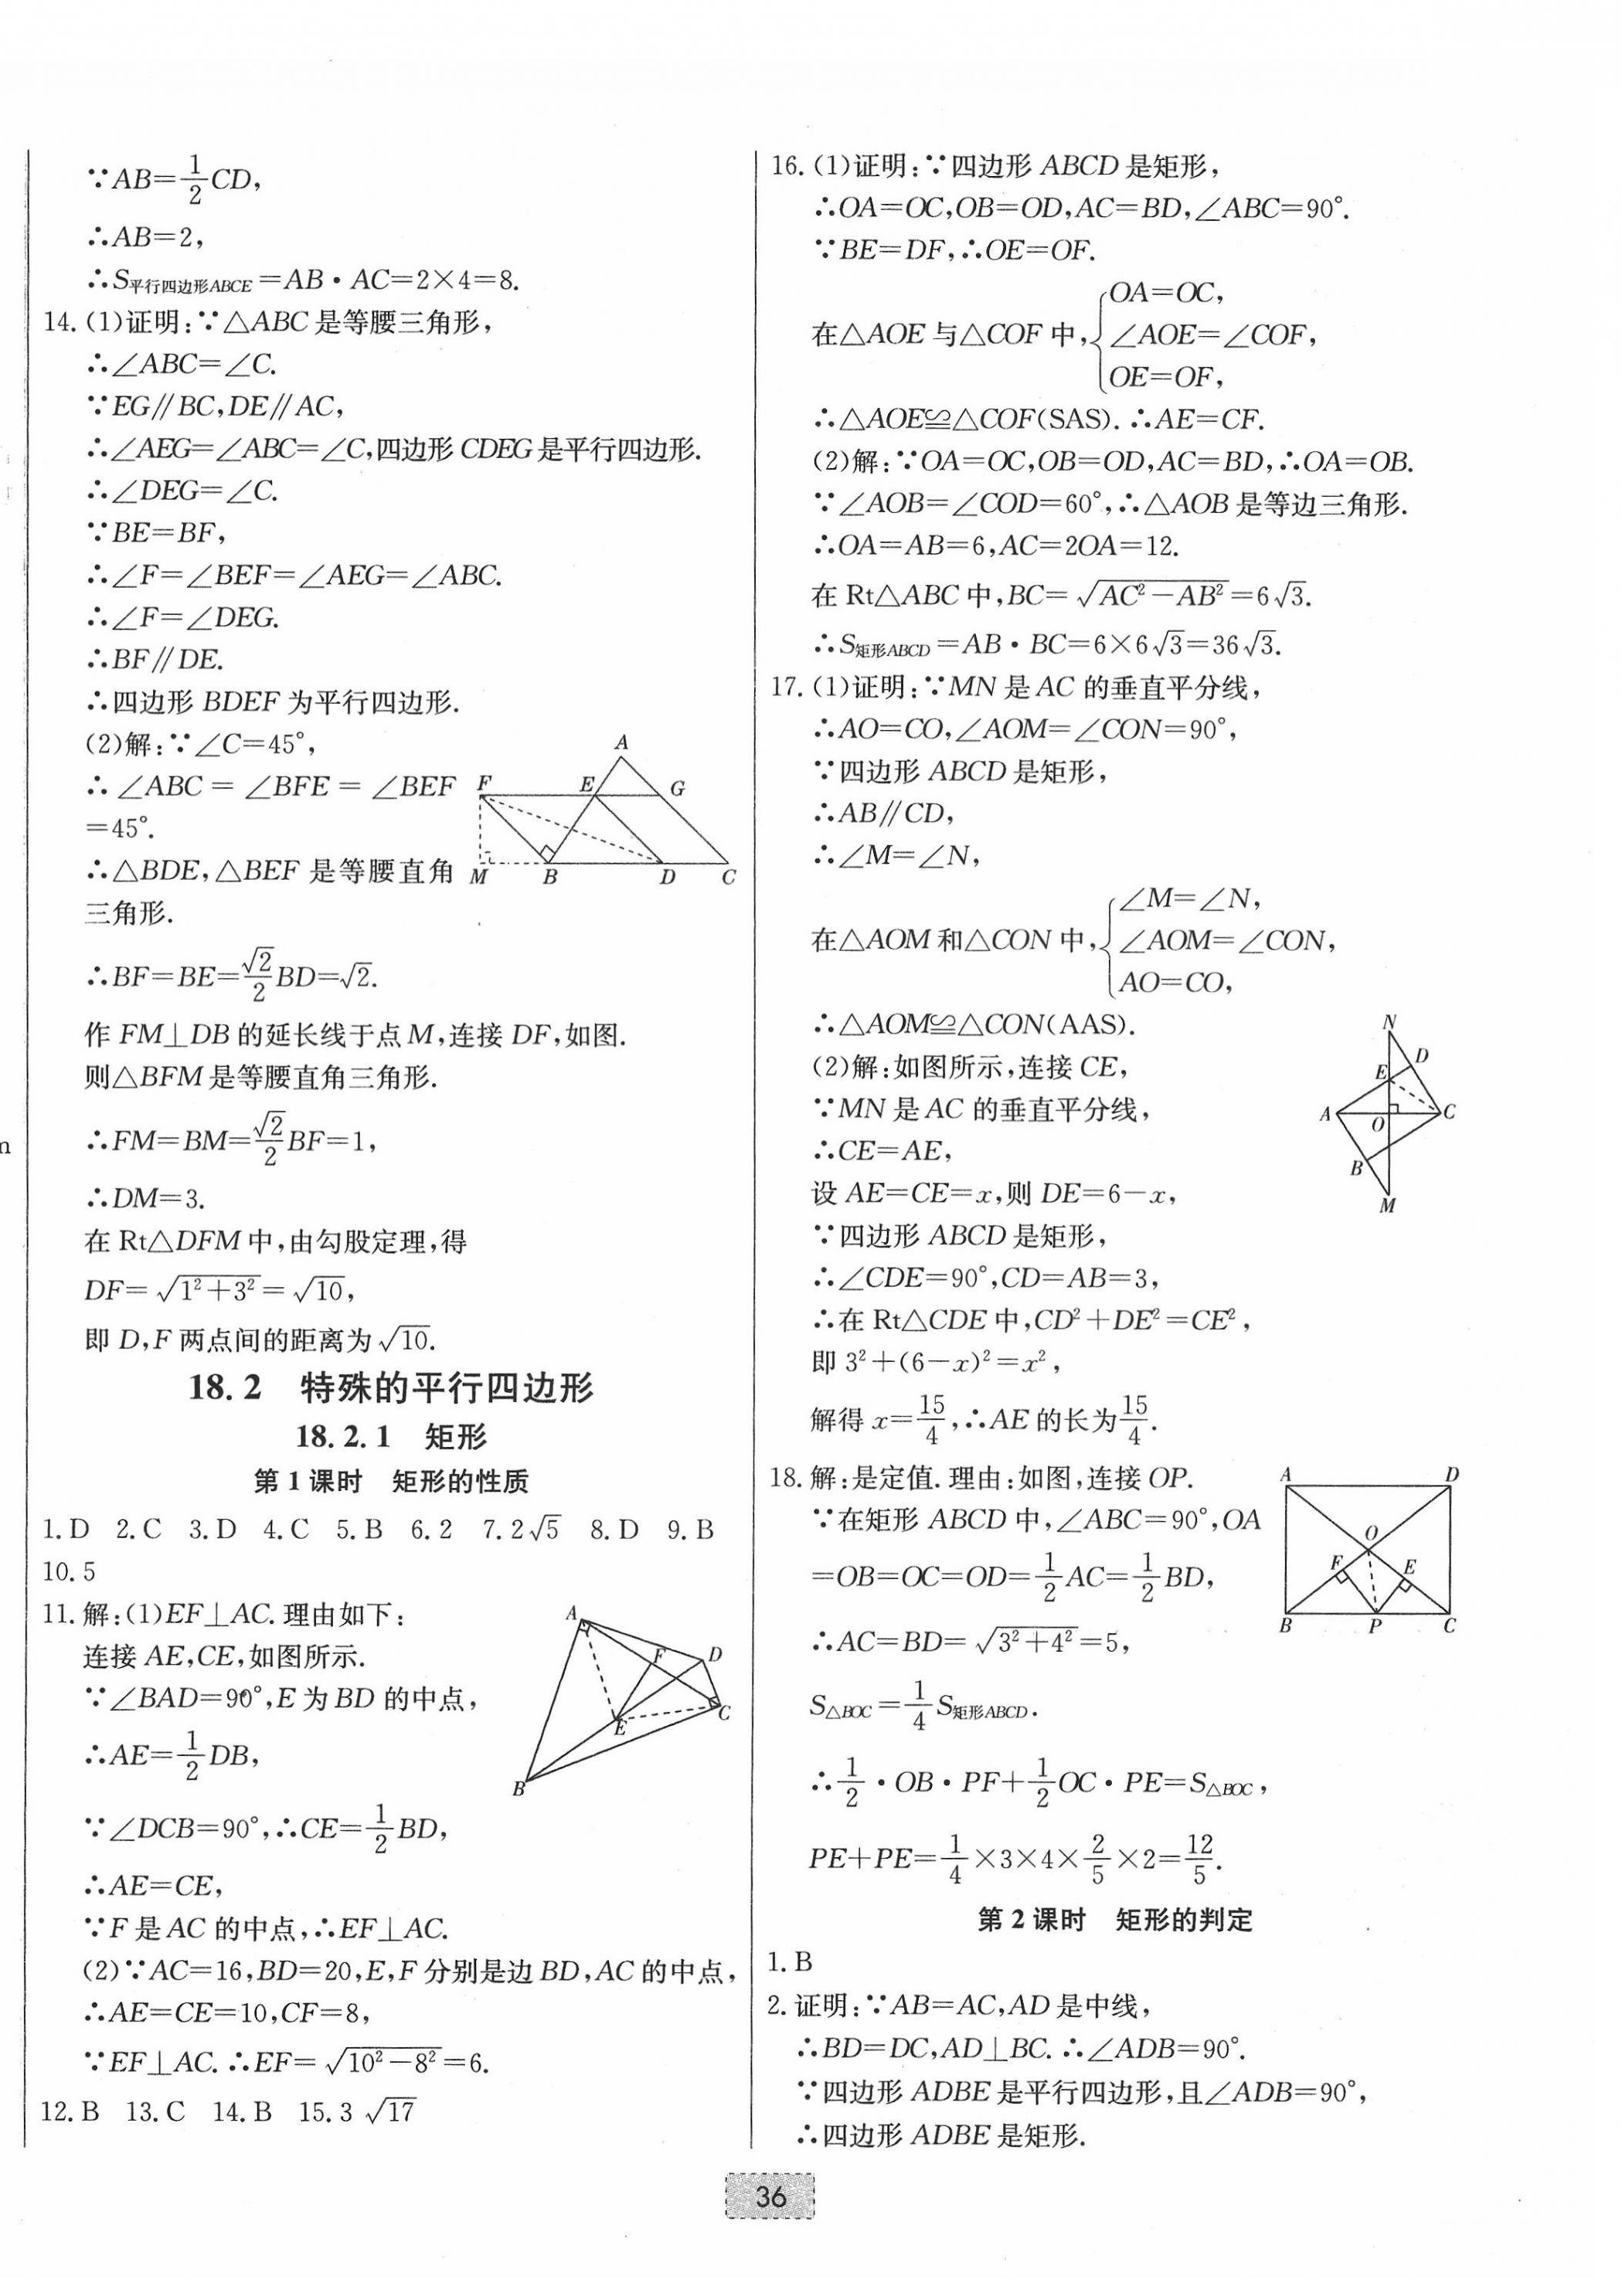 ∵AB=\frac{1}{2}CD,
∴AB=2,
∴S平行四边形ABCE=AB·AC=2×4=8.
14.(1)证明:∵△ABC是等腰三角形,
∴∠ABC=∠C.
∵EG∥BC,DE∥AC,
∴∠AEG=∠ABC=∠C,四边形CDEG是平行四边形.
∴∠DEG=∠C.
∵BE=BF,
∴∠F=∠BEF=∠AEG=∠ABC.
∴∠F=∠DEG.
∴BF∥DE.
∴四边形BDEF为平行四边形.
(2)解:∵∠C=45°,
∴∠ABC=∠BFE=∠BEF
=45°.
∴△BDE,△BEF是等腰直角
三角形.
A
F E G
M B D C
∴BF=BE=\frac{√2}{2}BD=√2.
作FM⊥DB的延长线于点M,连接DF,如图.
则△BFM是等腰直角三角形.
∴FM=BM=\frac{√2}{2}BF=1,
∴DM=3.
在Rt△DFM中,由勾股定理,得
DF=√(1²+3²)=√10,
即D,F两点间的距离为√10.
18.2 特殊的平行四边形
18.2.1 矩形
第1课时 矩形的性质
1.D 2.C 3.D 4.C 5.B 6.2 7.2√5 8.D 9.B
10.5
11.解:(1)EF⊥AC.理由如下:
连接AE,CE,如图所示.
∵∠BAD=90°,E为BD的中点,
∴AE=\frac{1}{2}DB,
A
F D
E C
B
∵∠DCB=90°,∴CE=\frac{1}{2}BD,
∴AE=CE,
∵F是AC的中点,∴EF⊥AC.
(2)∵AC=16,BD=20,E,F分别是边BD,AC的中点,
∴AE=CE=10,CF=8,
∵EF⊥AC.∴EF=√(10²-8²)=6.
12.B 13.C 14.B 15.3 √17
16.(1)证明:∵四边形ABCD是矩形,
∴OA=OC,OB=OD,AC=BD,∠ABC=90°.
∵BE=DF,∴OE=OF.
OA=OC,
在△AOE与△COF中,{∠AOE=∠COF,
OE=OF,
∴△AOE≌△COF(SAS).∴AE=CF.
(2)解:∵OA=OC,OB=OD,AC=BD,∴OA=OB.
∵∠AOB=∠COD=60°,∴△AOB是等边三角形.
∴OA=AB=6,AC=2OA=12.
在Rt△ABC中,BC=√(AC²-AB²)=6√3.
∴S矩形ABCD=AB·BC=6×6√3=36√3.
17.(1)证明:∵MN是AC的垂直平分线,
∴AO=CO,∠AOM=∠CON=90°,
∵四边形ABCD是矩形,
∴AB∥CD,
∴∠M=∠N,
∠M=∠N,
在△AOM和△CON中,{∠AOM=∠CON,
AO=CO,
∴△AOM≌△CON(AAS).
(2)解:如图所示,连接CE,
∵MN是AC的垂直平分线,
∴CE=AE,
设AE=CE=x,则DE=6-x,
∵四边形ABCD是矩形,
∴∠CDE=90°,CD=AB=3,
∴在Rt△CDE中,CD²+DE²=CE²,
即3²+(6-x)²=x²,
解得x=\frac{15}{4},∴AE的长为\frac{15}{4}.
N
D
E
A O C
B
M
18.解:是定值.理由:如图,连接OP.
∵在矩形ABCD中,∠ABC=90°,OA
=OB=OC=OD=\frac{1}{2}AC=\frac{1}{2}BD,
∴AC=BD=√(3²+4²)=5,
A D
O
F E
B P C
S△BOC=\frac{1}{4}S矩形ABCD.
∴\frac{1}{2}·OB·PF+\frac{1}{2}OC·PE=S△BOC,
PE+PE=\frac{1}{4}×3×4×\frac{2}{5}×2=\frac{12}{5}.
第2课时 矩形的判定
1.B
2.证明:∵AB=AC,AD是中线,
∴BD=DC,AD⊥BC.∴∠ADB=90°.
∵四边形ADBE是平行四边形,且∠ADB=90°,
∴四边形ADBE是矩形.
36